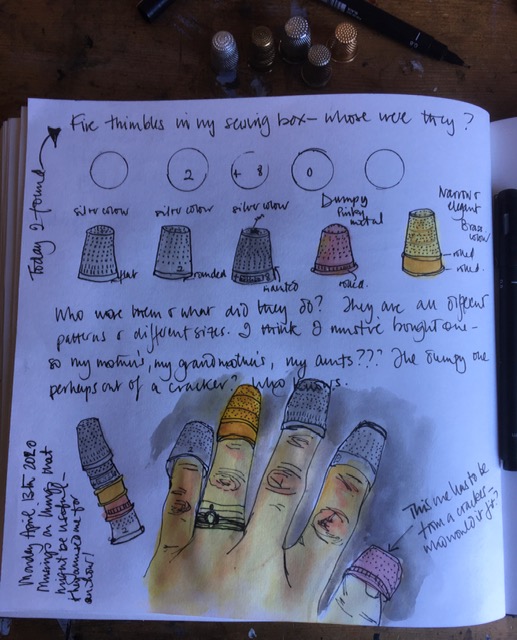 Five thimbles in my sewing box - whose were they?
Today I found
2
+ 8
0
silver colour
silver colour
silver colour
Dumpy
Pinky
metal
Narrow &
elegant
Brass
colour
flat
2
rounded
rolled
rolled.
Who wore them & what did they do? They are all different
patterns & different sizes. I think I must've bought one -
so my mother's, my grandmother's, my aunts??? The dumpy one
perhaps out of a cracker? Who knows.
Monday April 13th 2020
musings on things that
might be useful -
for
This one has to be
from a cracker -
who would it fit?